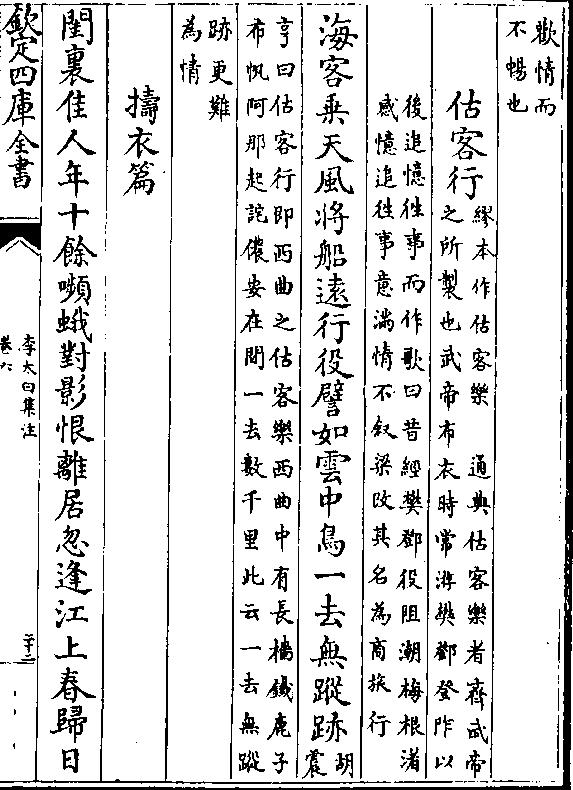 歡情而
不暢也
估客行
繆本作估客樂　通典估客樂者齊武帝
之所製也武帝布衣時常游樊鄧登阼以
後追憶徃事而作歌曰昔經樊鄧役阻潮梅根渚
感憶追徃事意滿情不叙梁改其名為商旅行
海客乗天風將船逺行役譬如雲中鳥一去無蹤跡
胡震
亨曰估客行即西曲之估客樂西曲中有長檣鐵鹿子
布帆阿那起詫儂安在間一去數千里此云一去無蹤
跡更難
為情
擣衣篇
閨裏佳人年十餘嚬蛾對影恨離居忽逢江上春歸日
欽定四庫全書
李太白集注
卷六
二十三